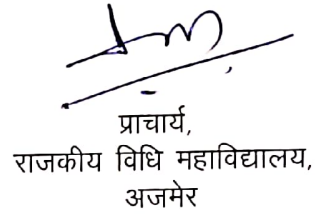 प्राचार्य,
राजकीय विधि महाविद्यालय,
अजमेर